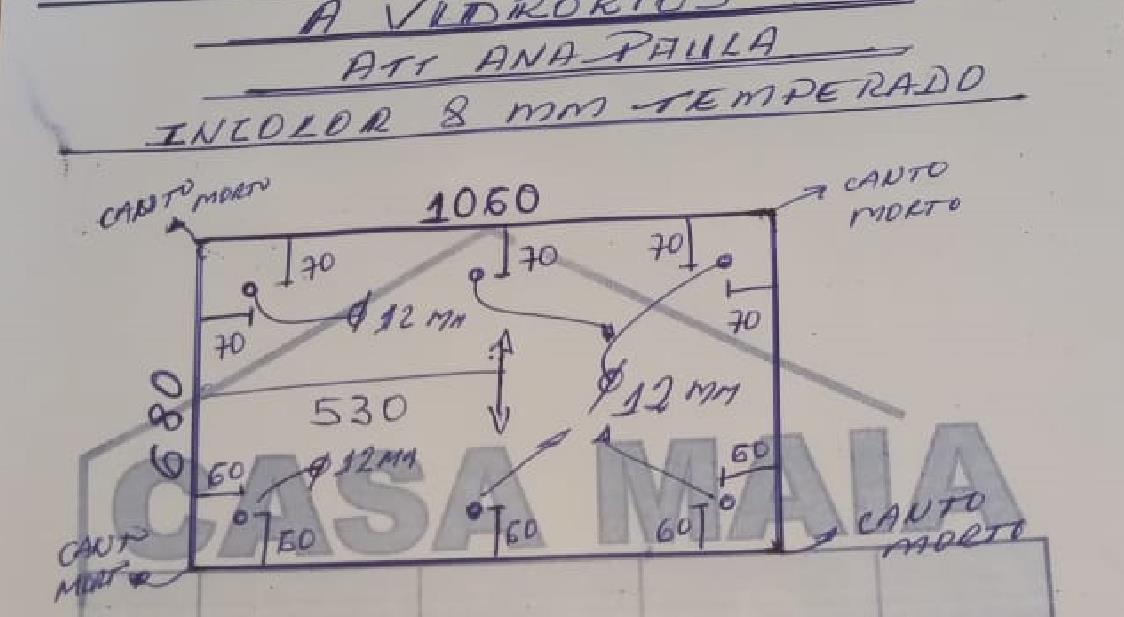 A VIDRORIOS
ATT ANA PAULA
INCOLOR 8 mm TEMPERADO
CANTO MORTO
1060
CANTO
MORTO
70
70
70
70
70
Ø 12 MM
Ø 12 MM
680
530
60
Ø 12 MM
60
60
60
60
CASA MAIA
CANTO
MORTO
CANTO
MORTO